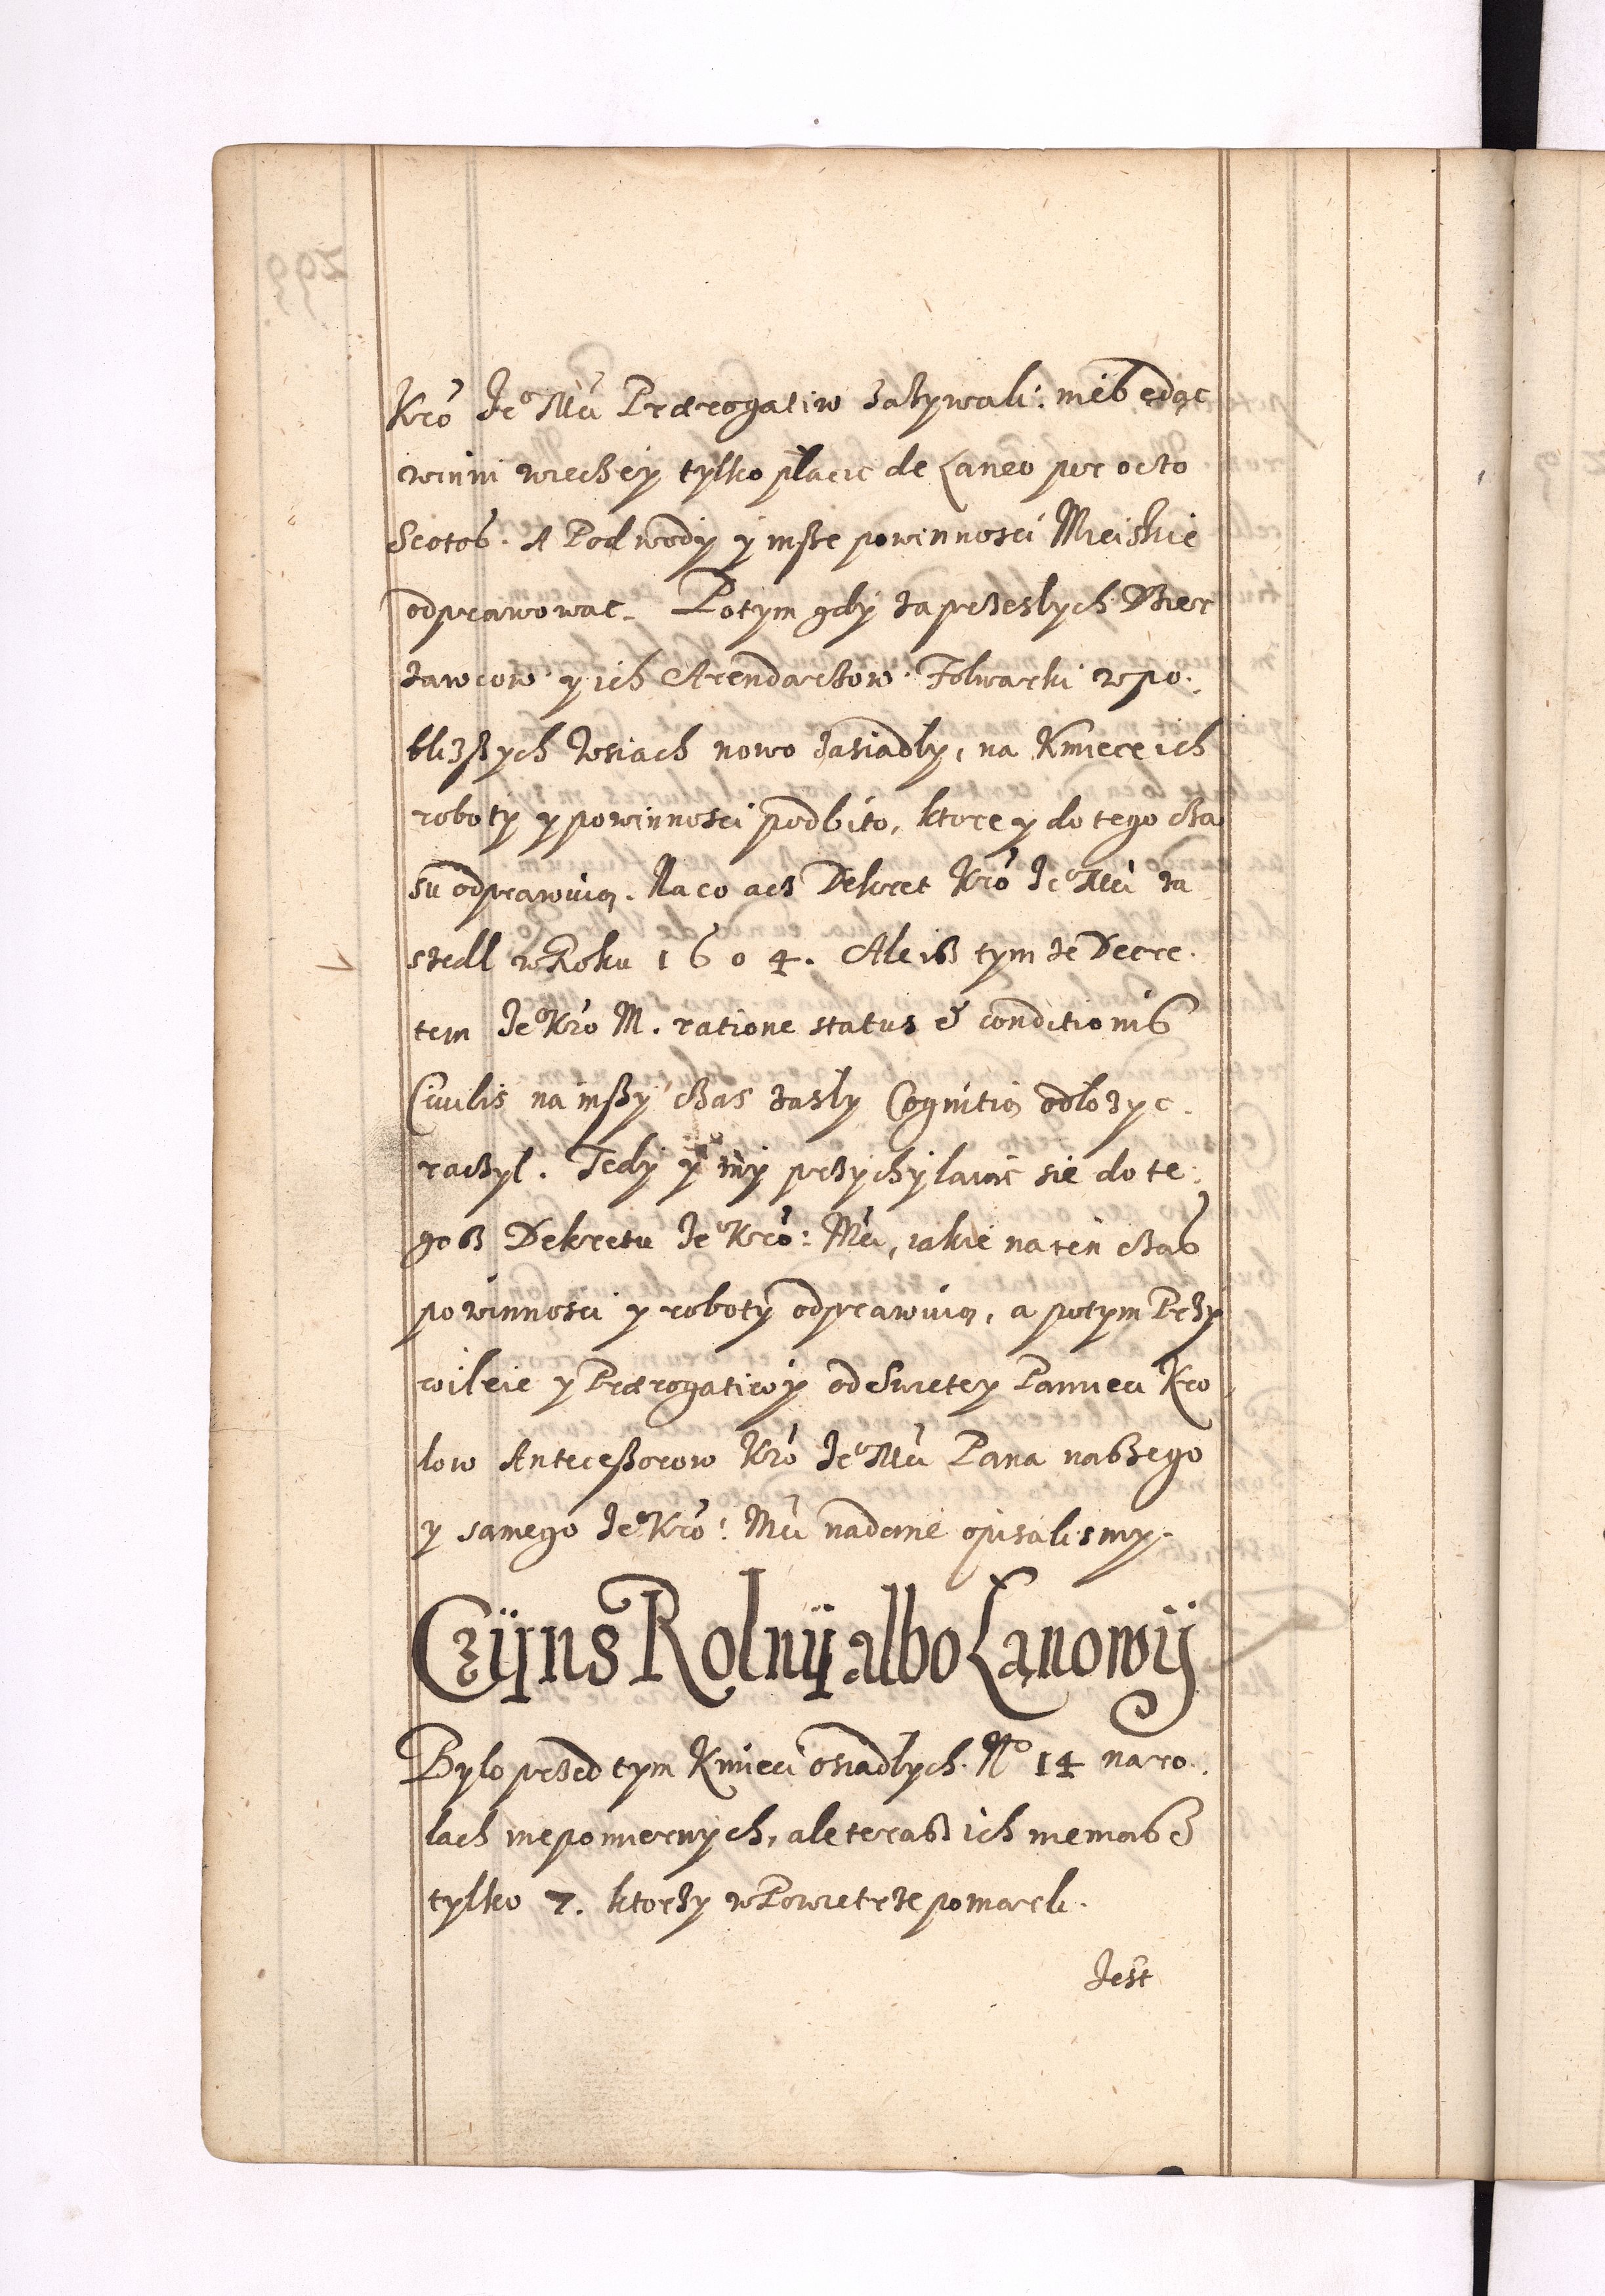 Kró Jeº Mći Prærogatiw zażywali: niebędąc
winni wiecżey tylko płacic de Laneo per octo
Scotos. A Podwody y inße powinnosci Mieiskie
odprawowac. Potym gdy za przeszłych Dzier
zawcow y ich Arendarzow Folwarki w po.
bliżßych wsiach nowo zasiadły, na Kmiece ich
roboty y powinnosci podbito, ktore y do tego cża
su odprawuią. Na co acz Dekret Kró Jeº Mći za
szedł w Roku 1604. Ale iż tymże Decre.
tem Jeº Kró M. ratione status & conditionis
Ciuilis na inßy cżas zaszły Cognitią odłożyc.
racżył. Tedy y my przychylaiąc sie do te.
goż Dekretu Jeº Kró: Mći, iakie na ten cżas
powinnosci y roboty odprawuią, a potym Przy
wileie y Prærogatiwy od Swietey Pamieci Kro
low Anteceßorow Kró Jeº Mći Pana naszego
y samego Jeº Kró: Mći nadane opisalismy.
Czÿns Rolnÿ albo Łanowÿ
Bylo przed tym Kmieci osiadłych Nº 14 na ro.
lach niepomiernych, ale teraz ich niemasz
tylko 7. ktorzy w Powietrze pomarli.
Jest